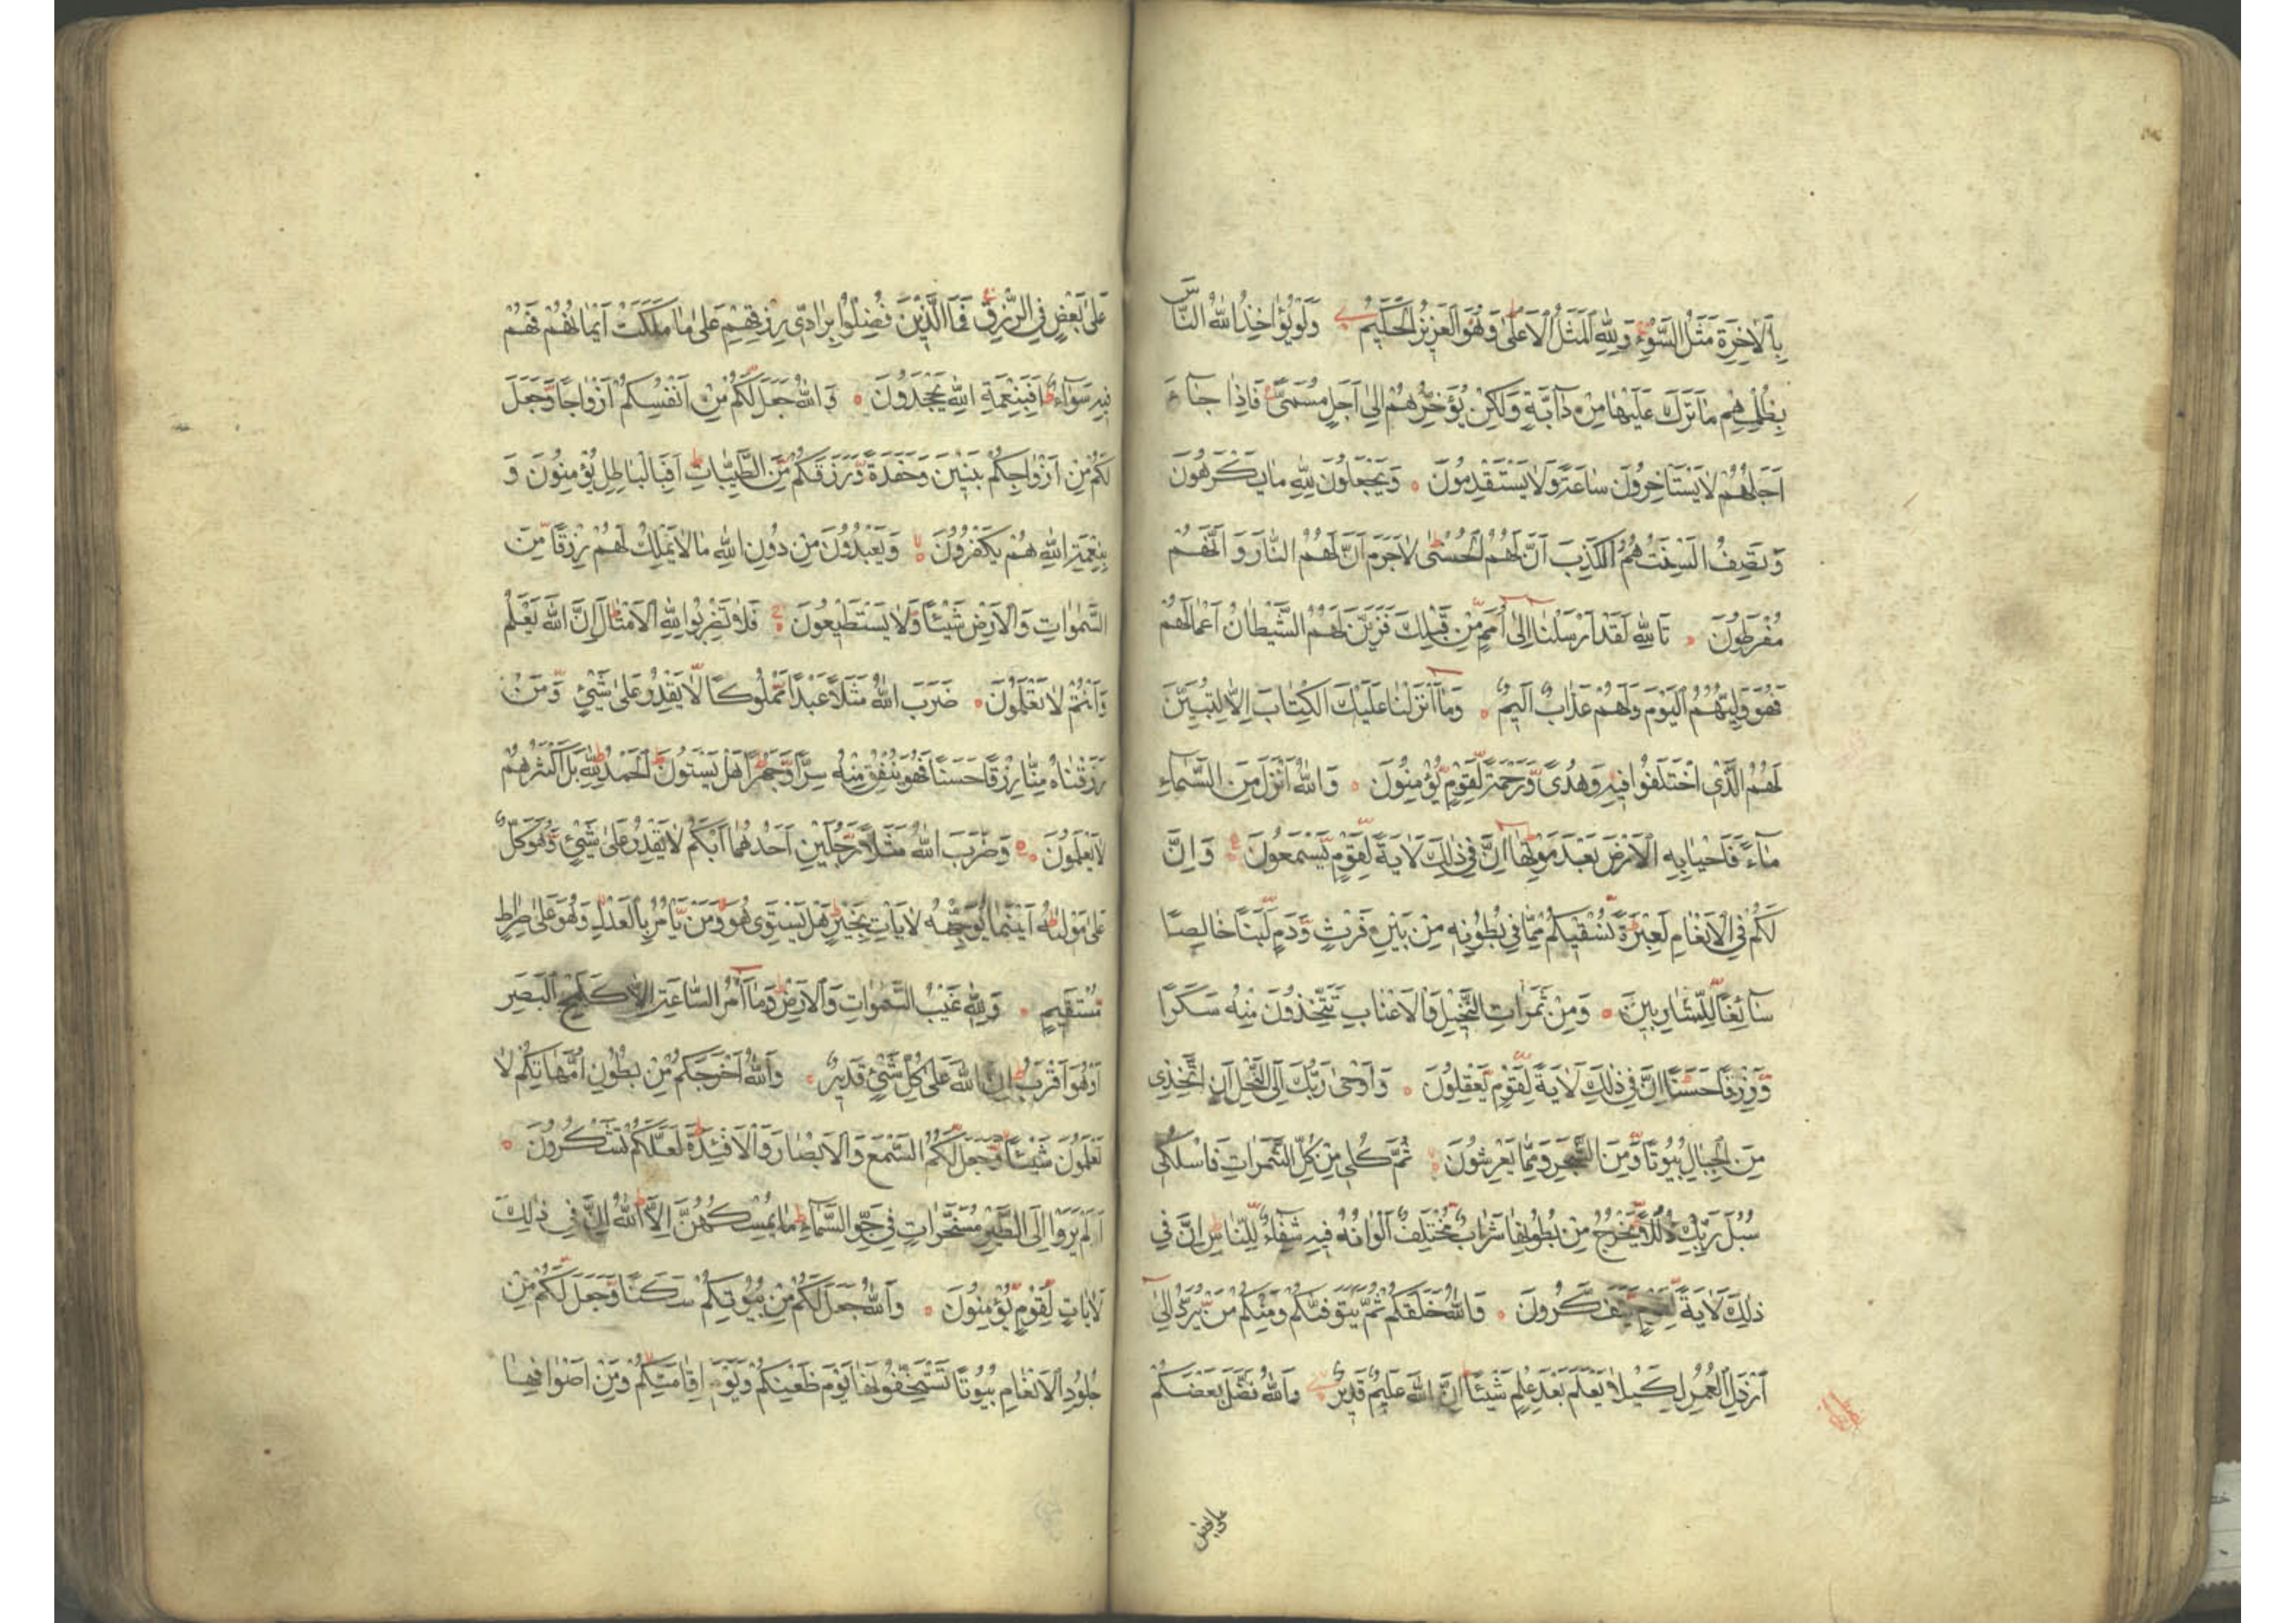 بِالْاٰخِرَةِ مَثَلُ السَّوْءِ وَلِلّٰهِ الْمَثَلُ الْاَعْلٰى وَهُوَ الْعَزِيزُ الْحَكِيمُ وَلَوْ يُؤَاخِذُ اللّٰهُ النَّاسَ
بِظُلْمِهِمْ مَا تَرَكَ عَلَيْهَا مِنْ دَآبَّةٍ وَلٰكِنْ يُؤَخِّرُهُمْ اِلٰى اَجَلٍ مُسَمًّى فَاِذَا جَآءَ
اَجَلُهُمْ لَا يَسْتَأْخِرُونَ سَاعَةً وَلَا يَسْتَقْدِمُونَ وَيَجْعَلُونَ لِلّٰهِ مَا يَكْرَهُونَ
وَتَصِفُ اَلْسِنَتُهُمُ الْكَذِبَ اَنَّ لَهُمُ الْحُسْنٰى لَا جَرَمَ اَنَّ لَهُمُ النَّارَ وَاَنَّهُمْ
مُفْرَطُونَ تَاللّٰهِ لَقَدْ اَرْسَلْنَا اِلٰى اُمَمٍ مِّنْ قَبْلِكَ فَزَيَّنَ لَهُمُ الشَّيْطَانُ اَعْمَالَهُمْ
فَهُوَ وَلِيُّهُمُ الْيَوْمَ وَلَهُمْ عَذَابٌ اَلِيمٌ وَمَا اَنْزَلْنَا عَلَيْكَ الْكِتَابَ اِلَّا لِتُبَيِّنَ
لَهُمُ الَّذِي اخْتَلَفُوا فِيهِ وَهُدًى وَّرَحْمَةً لِّقَوْمٍ يُّؤْمِنُونَ وَاللّٰهُ اَنْزَلَ مِنَ السَّمَآءِ
مَآءً فَاَحْيَا بِهِ الْاَرْضَ بَعْدَ مَوْتِهَا اِنَّ فِي ذٰلِكَ لَاٰيَةً لِّقَوْمٍ يَّسْمَعُونَ وَاِنَّ
لَكُمْ فِي الْاَنْعَامِ لَعِبْرَةً نُسْقِيكُمْ مِمَّا فِي بُطُونِهِ مِنْ بَيْنِ فَرْثٍ وَّدَمٍ لَّبَنًا خَالِصًا
سَآئِغًا لِّلشَّارِبِينَ وَمِنْ ثَمَرَاتِ النَّخِيلِ وَالْاَعْنَابِ تَتَّخِذُونَ مِنْهُ سَكَرًا
وَّرِزْقًا حَسَنًا اِنَّ فِي ذٰلِكَ لَاٰيَةً لِّقَوْمٍ يَّعْقِلُونَ وَاَوْحٰى رَبُّكَ اِلَى النَّحْلِ اَنِ اتَّخِذِي
مِنَ الْجِبَالِ بُيُوتًا وَّمِنَ الشَّجَرِ وَمِمَّا يَعْرِشُونَ ثُمَّ كُلِي مِنْ كُلِّ الثَّمَرَاتِ فَاسْلُكِي
سُبُلَ رَبِّكِ ذُلُلًا يَّخْرُجُ مِنْ بُطُونِهَا شَرَابٌ مُّخْتَلِفٌ اَلْوَانُهُ فِيهِ شِفَآءٌ لِّلنَّاسِ اِنَّ فِي
ذٰلِكَ لَاٰيَةً لِّقَوْمٍ يَّتَفَكَّرُونَ وَاللّٰهُ خَلَقَكُمْ ثُمَّ يَتَوَفّٰيكُمْ وَمِنْكُمْ مَنْ يُّرَدُّ اِلٰى
اَرْذَلِ الْعُمُرِ لِكَيْلَا يَعْلَمَ بَعْدَ عِلْمٍ شَيْئًا اِنَّ اللّٰهَ عَلِيمٌ قَدِيرٌ وَاللّٰهُ فَضَّلَ بَعْضَكُمْ
على بعض
عَلٰى بَعْضٍ فِي الرِّزْقِ فَمَا الَّذِينَ فُضِّلُوا بِرَادِّي رِزْقِهِمْ عَلٰى مَا مَلَكَتْ اَيْمَانُهُمْ فَهُمْ
فِيهِ سَوَآءٌ اَفَبِنِعْمَةِ اللّٰهِ يَجْحَدُونَ وَاللّٰهُ جَعَلَ لَكُمْ مِنْ اَنْفُسِكُمْ اَزْوَاجًا وَّجَعَلَ
لَكُمْ مِنْ اَزْوَاجِكُمْ بَنِينَ وَحَفَدَةً وَّرَزَقَكُمْ مِّنَ الطَّيِّبَاتِ اَفَبِالْبَاطِلِ يُؤْمِنُونَ وَ
بِنِعْمَةِ اللّٰهِ هُمْ يَكْفُرُونَ وَيَعْبُدُونَ مِنْ دُونِ اللّٰهِ مَا لَا يَمْلِكُ لَهُمْ رِزْقًا مِّنَ
السَّمٰوَاتِ وَالْاَرْضِ شَيْئًا وَّلَا يَسْتَطِيعُونَ فَلَا تَضْرِبُوا لِلّٰهِ الْاَمْثَالَ اِنَّ اللّٰهَ يَعْلَمُ
وَاَنْتُمْ لَا تَعْلَمُونَ ضَرَبَ اللّٰهُ مَثَلًا عَبْدًا مَّمْلُوكًا لَّا يَقْدِرُ عَلٰى شَيْئٍ وَّمَنْ
رَزَقْنَاهُ مِنَّا رِزْقًا حَسَنًا فَهُوَ يُنْفِقُ مِنْهُ سِرًّا وَّجَهْرًا هَلْ يَسْتَوُنَ اَلْحَمْدُ لِلّٰهِ بَلْ اَكْثَرُهُمْ
لَا يَعْلَمُونَ وَضَرَبَ اللّٰهُ مَثَلًا رَّجُلَيْنِ اَحَدُهُمَا اَبْكَمُ لَا يَقْدِرُ عَلٰى شَيْئٍ وَّهُوَ كَلٌّ
عَلٰى مَوْلٰيهُ اَيْنَمَا يُوَجِّهْهُ لَا يَأْتِ بِخَيْرٍ هَلْ يَسْتَوِي هُوَ وَمَنْ يَّأْمُرُ بِالْعَدْلِ وَهُوَ عَلٰى صِرَاطٍ
مُّسْتَقِيمٍ وَلِلّٰهِ غَيْبُ السَّمٰوَاتِ وَالْاَرْضِ وَمَا اَمْرُ السَّاعَةِ اِلَّا كَلَمْحِ الْبَصَرِ
اَوْ هُوَ اَقْرَبُ اِنَّ اللّٰهَ عَلٰى كُلِّ شَيْئٍ قَدِيرٌ وَاللّٰهُ اَخْرَجَكُمْ مِّنْ بُطُونِ اُمَّهَاتِكُمْ لَا
تَعْلَمُونَ شَيْئًا وَّجَعَلَ لَكُمُ السَّمْعَ وَالْاَبْصَارَ وَالْاَفْئِدَةَ لَعَلَّكُمْ تَشْكُرُونَ
اَلَمْ يَرَوْا اِلَى الطَّيْرِ مُسَخَّرَاتٍ فِي جَوِّ السَّمَآءِ مَا يُمْسِكُهُنَّ اِلَّا اللّٰهُ اِنَّ فِي ذٰلِكَ
لَاٰيَاتٍ لِّقَوْمٍ يُّؤْمِنُونَ وَاللّٰهُ جَعَلَ لَكُمْ مِنْ بُيُوتِكُمْ سَكَنًا وَّجَعَلَ لَكُمْ مِنْ
جُلُودِ الْاَنْعَامِ بُيُوتًا تَسْتَخِفُّونَهَا يَوْمَ ظَعْنِكُمْ وَيَوْمَ اِقَامَتِكُمْ وَمِنْ اَصْوَافِهَا